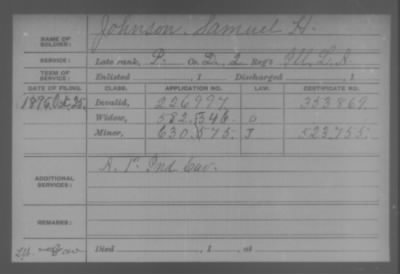 NAME OF SOLDIER: Johnson, Samuel H.
SERVICE: Late rank, P. Co. D, 2 Reg't Ill. L. A.
TERM OF SERVICE: Enlisted , 1 Discharged , 1
DATE OF FILING. CLASS. APPLICATION NO. LAW. CERTIFICATE NO.
Invalid, 226997 353869
Widow, 582,346 O
Minor, 630,575. J 523,755.
ADDITIONAL SERVICES: A. 1" Ind Cav.
REMARKS:
Died , 1 , at